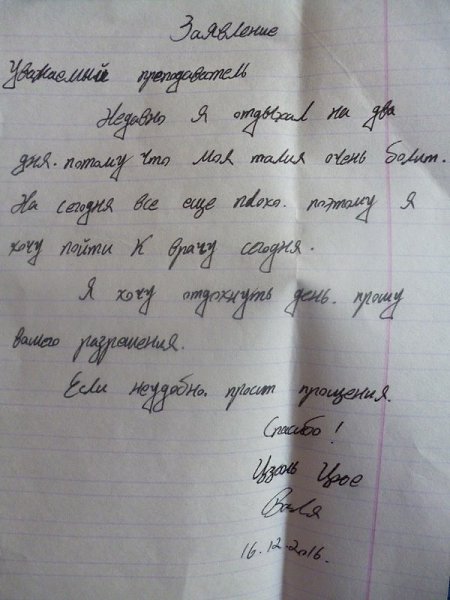 Заявление
Уважаемый преподаватель
Недавно я отдыхал на два
дня. потому что моя талия очень болит.
На сегодня все еще плохо. поэтому я
хочу пойти к врачу сегодня.
Я хочу отдохнуть день. прошу
вашего разрешения.
Если неудобно. просит прощения.
Спасибо!
Цзонь Цзюе
Валя
16.12.2016.